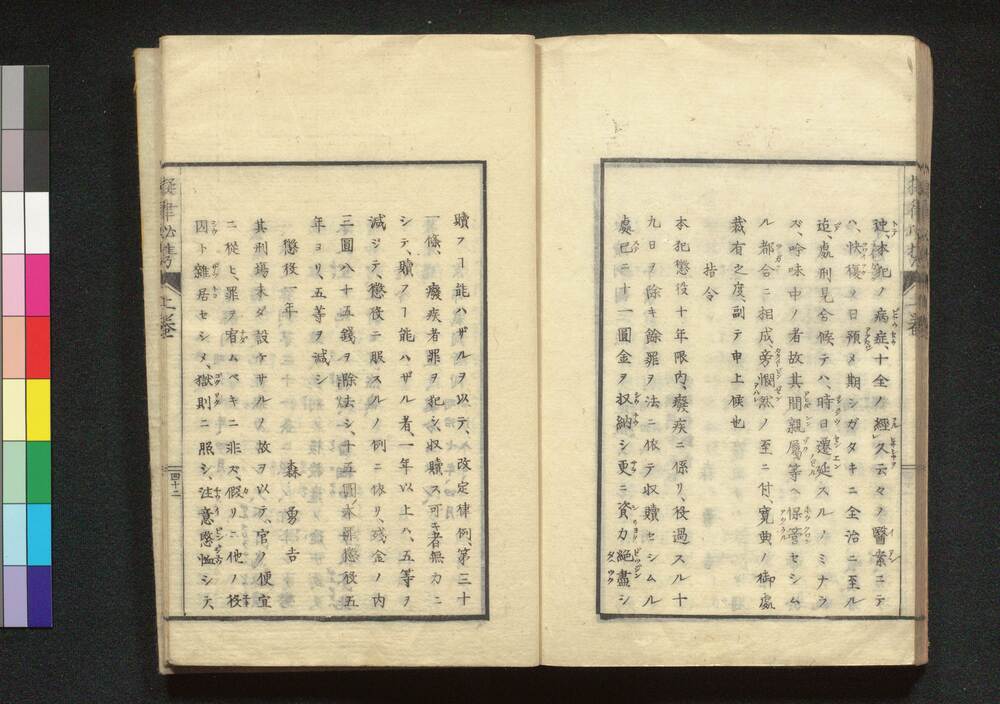 逑本犯ノ病症、十全ノ經久云々ノ醫案ニテ
ハ、快復ノ日預メ期シガタキニ全治ニ至ル
迄、處刑見合候テハ、時日遷延スルノミナラ
ズ、吟味中ノ者故其間親屬等ヘ保管セシム
ル都合ニ相成、旁憫然ノ至ニ付、寛典ノ御處
裁有之度、副テ申上候也
指令
本犯懲役十年限內、癈疾ニ係リ、役過スル十
九日ヲ除キ餘罪ヲ法ニ依テ収贖セシムル
處、已ニ十一圓金ヲ収納シ更ニ資力絕盡シ
贖フヿ能ハザルヲ以テ、改定律例、第三十
一條、癈疾者罪ヲ犯シ収贖ス可キ者無力ニ
シテ、贖フヿ能ハザル者、一年以上ハ、五等ヲ
減ジテ、懲役ニ服スルノ例ニ依リ、残金ノ內
三圓八十五錢ヲ除去シ、十五圓、永那懲役五
年ヨリ、五等ヲ減シ
懲役一年 森勇吉
其刑場未ダ設ケサルノ故ヲ以テ、官ノ便宜
ニ從ヒ、罪ヲ宥ムベキニ非ス、假リニ他ノ役
囚ト雜居セシメ、獄則ニ服シ、注意愍恤シテ、
擬律必携 上卷
四十二